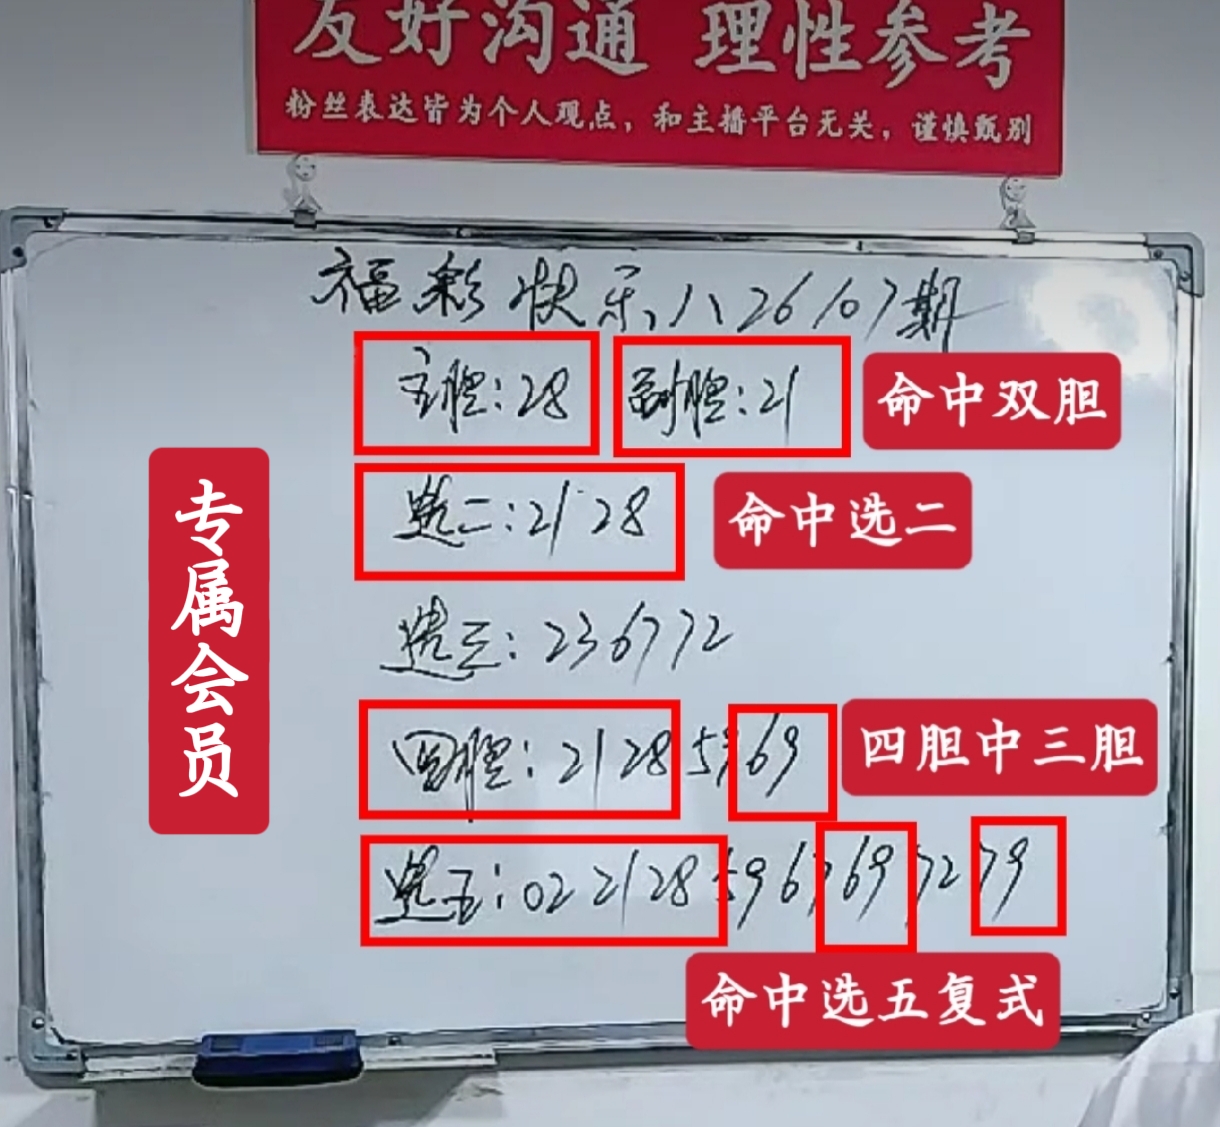 友好沟通 理性参考
粉丝表达皆为个人观点，和主播平台无关，谨慎甄别
福彩快乐八26107期
主胆：28 副胆：21 命中双胆
专属会员
选二：21 28 命中选二
选三：23 67 72
四胆：21 28 59 69 四胆中三胆
选五：02 21 28 59 67 69 72 79
命中选五复式